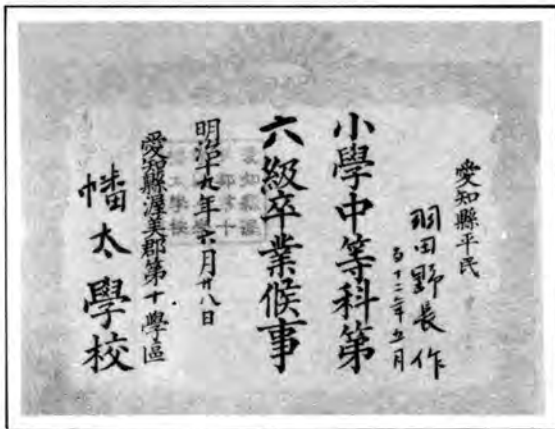 愛知縣平民
羽田野長作
十二年五月
小學中等科第
六級卒業候事
明治十九年六月廿八日
愛知縣渥美郡第十學區
幡太學校